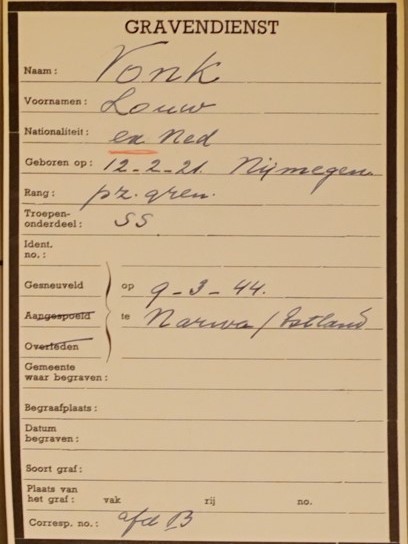 GRAVENDIENST
Naam: Vonk
Voornamen: Louw
Nationaliteit: ex Ned
Geboren op: 12-2-21. Nijmegen.
Rang: pz. gren.
Troepen-
onderdeel: SS
Ident.
no.:
Gesneuveld op 9-3-44.
Aangespoeld te Narwa/Estland
Overleden
Gemeente
waar begraven:
Begraafplaats:
Datum
begraven:
Soort graf:
Plaats van
het graf: vak rij no.
Corresp. no.: afd B